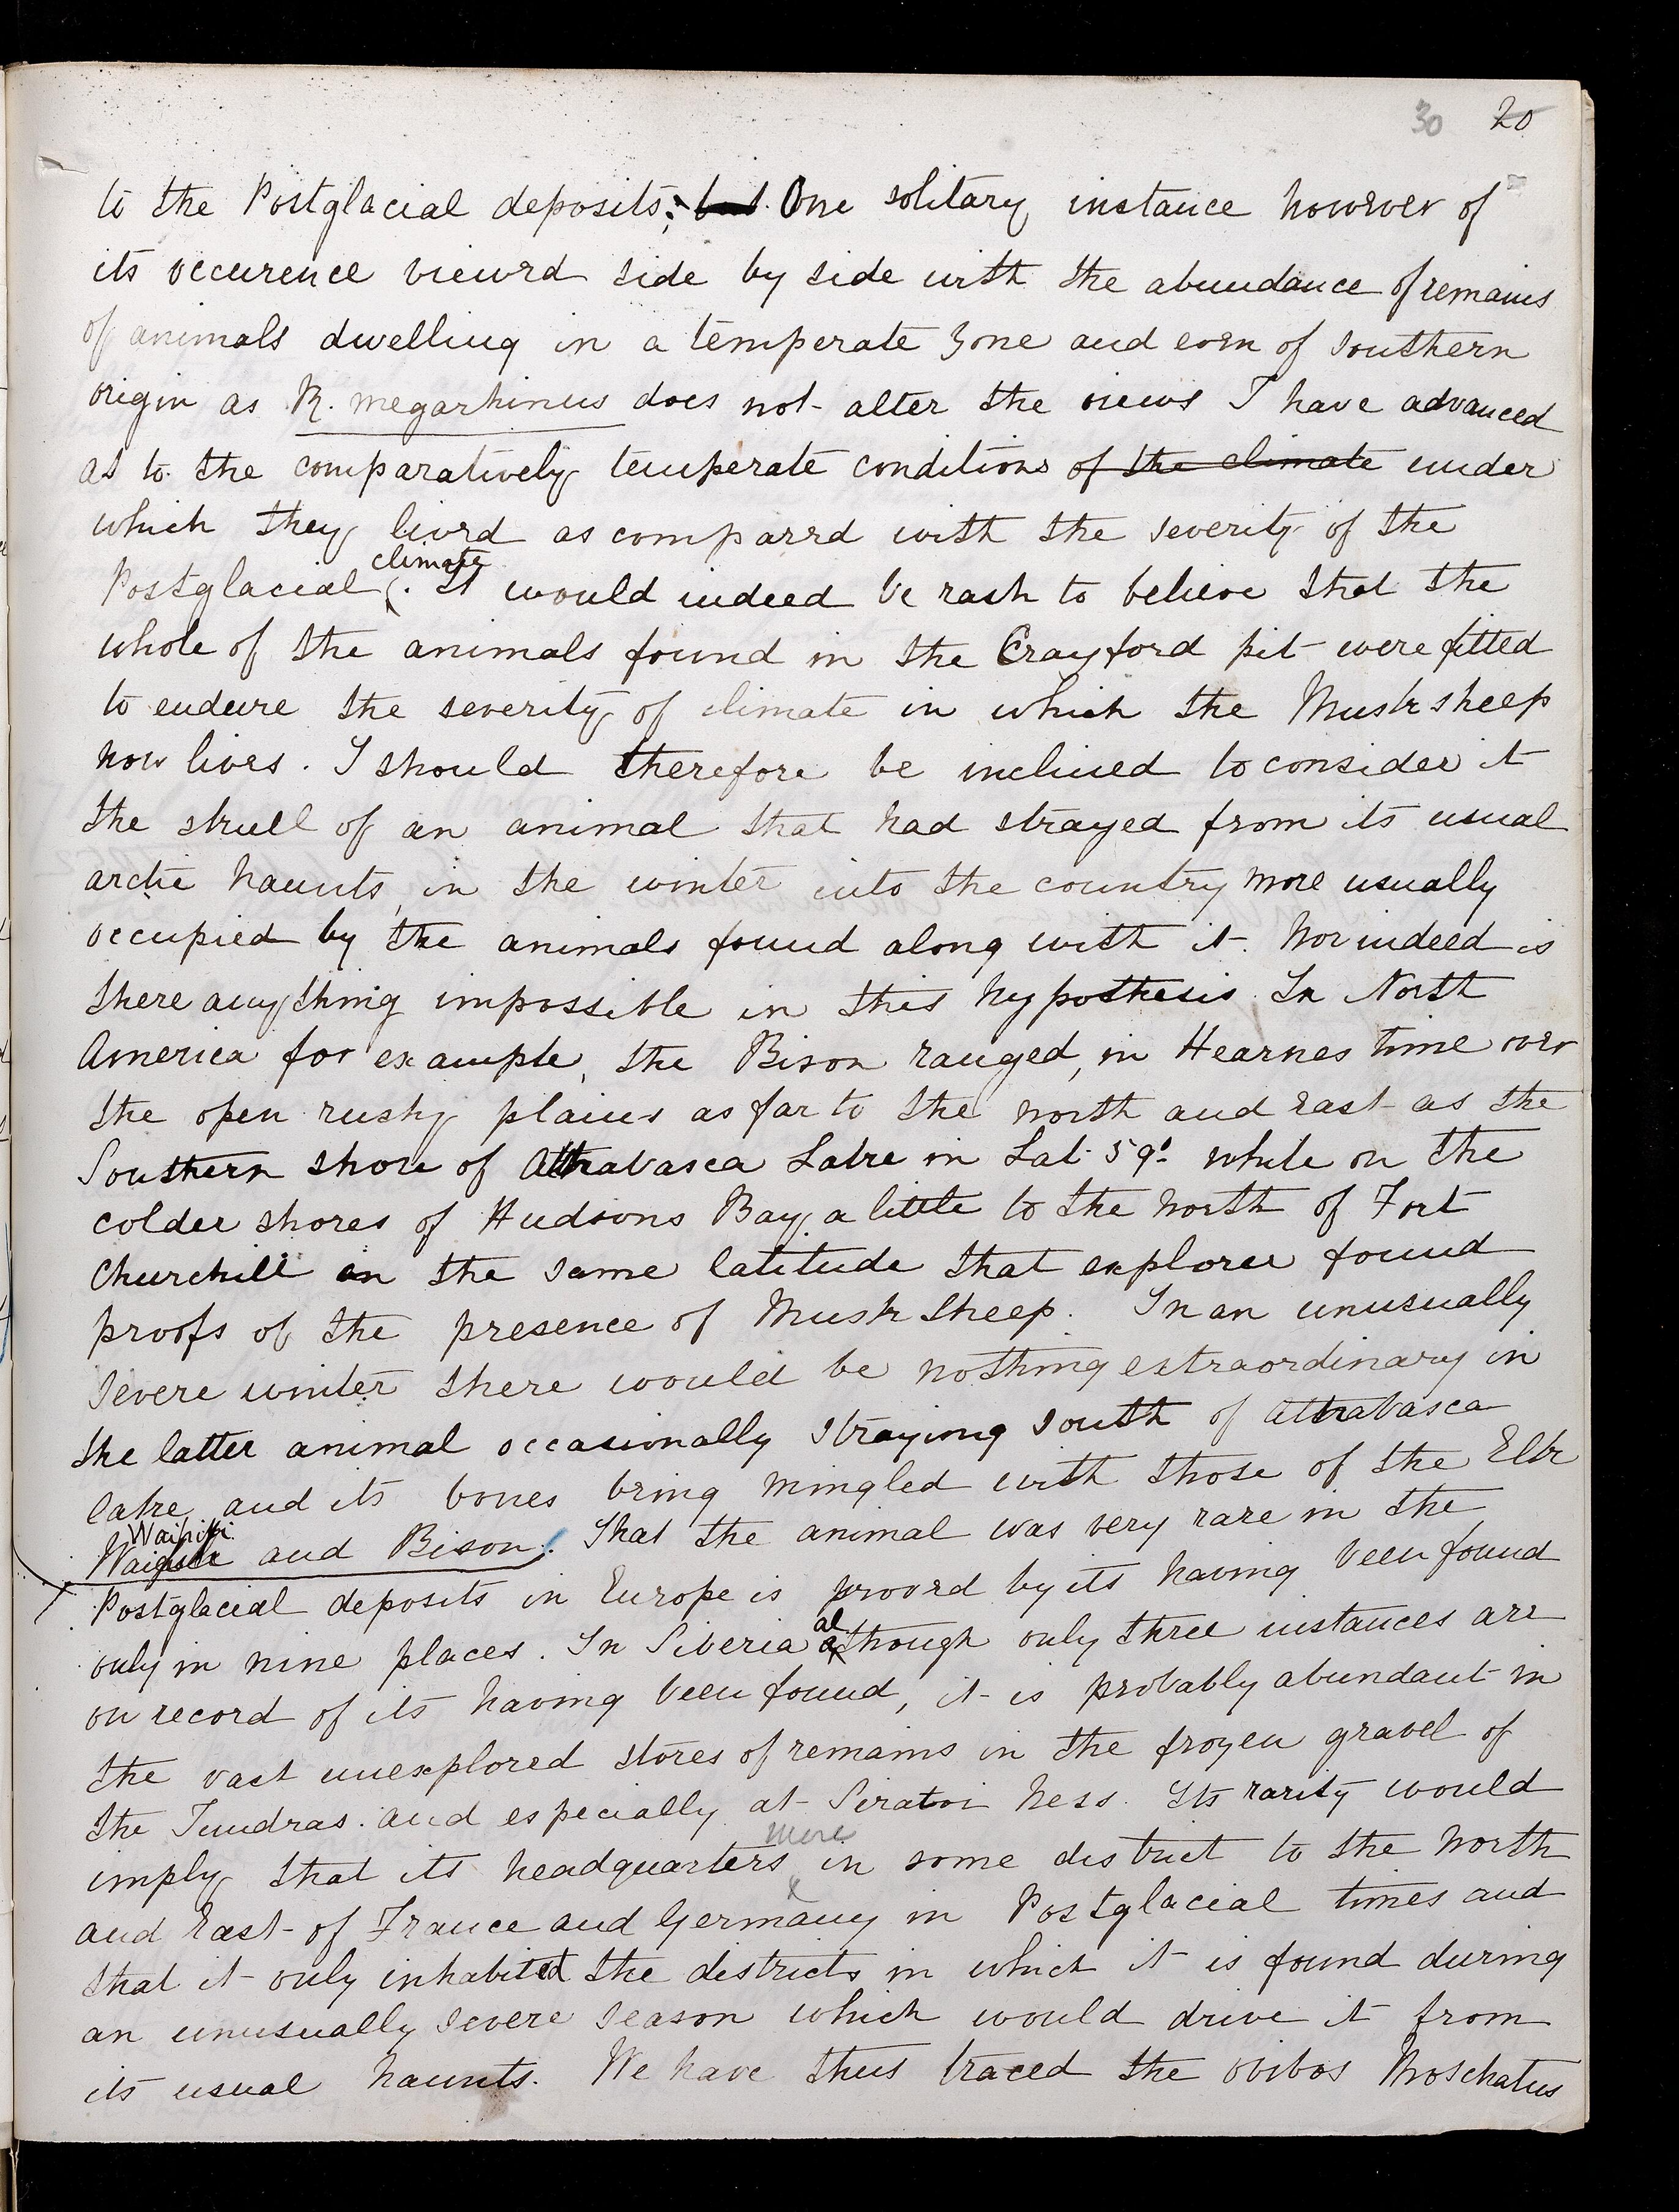 30 20
to the Postglacial deposits; but One solitary instance however of
its occurence viewed side by side with the abundance of remains
of animals dwelling in a temperate zone and even of southern
origin as R. megarhinus does not alter the views I have advanced
as to the comparatively temperate conditions of the climate under
which they lived as compared with the severity of the
climate
Postglacial. It would indeed be rash to believe that the
whole of the animals found in the Crayford pit were fitted
to endure the severity of climate in which the Musk sheep
now lives. I should therefore be inclined to consider it
the skull of an animal that had strayed from its usual
arctic haunts, in the winter into the country more usually
occupied by the animals found along with it. Nor indeed is
there anything impossible in this hypothesis. In North
America for example, the Bison ranged, in Hearnes time over
the open rushy plains as far to the north and east as the
Southern shore of Athabasca Lake in Lat. 59° while on the
colder shores of Hudsons Bay, a little to the North of Fort
Churchill in the same latitude that explorer found
proofs of the presence of Musk Sheep. In an unusually
severe winter there would be nothing extraordinary in
the latter animal occasionally straying south of Athabasca
lake, and its bones being mingled with those of the Elk
Waipiti
and Bison. That the animal was very rare in the
Postglacial deposits in Europe is proved by its having been found
only in nine places. In Siberia although only three instances are
on record of its having been found, it is probably abundant in
the vast unexplored stores of remains in the frozen gravel of
the Tundras. and especially at Ness. Its rarity would
more
imply that its headquarters in some district to the North
and East of France and Germany in Postglacial times and
that it only inhabited the districts in which it is found during
an unusually severe season which would drive it from
its usual haunts. We have thus traced the ovibos Moschatus